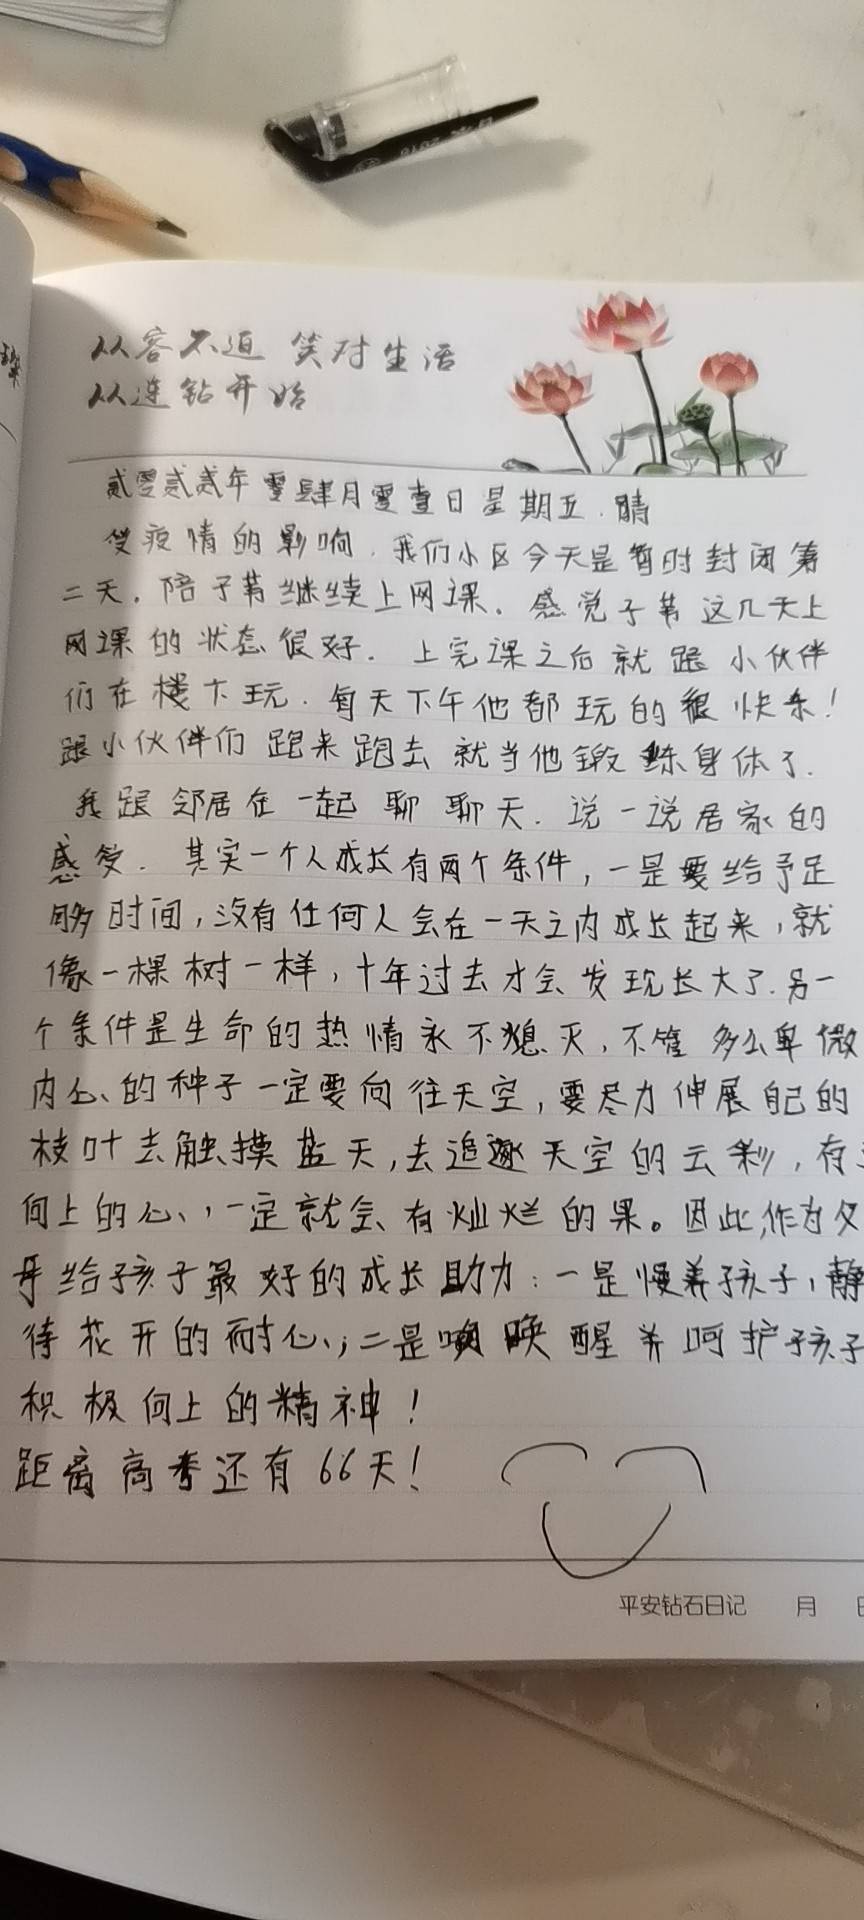 从容不迫 笑对生活
从连钻开始
贰零贰贰年零肆月零壹日星期五.晴
受疫情的影响.我们小区今天是暂时封闭第
二天.陪子苇继续上网课.感觉子苇这几天上
网课的状态很好.上完课之后就跟小伙伴
们在楼下玩.每天下午他都玩的很快乐!
跟小伙伴们跑来跑去就当他锻练身体了.
我跟邻居在一起聊聊天.说一说居家的
感受.其实一个人成长有两个条件,一是要给予足
够时间,没有任何人会在一天之内成长起来,就
像一棵树一样,十年过去才会发现长大了.另一
个条件是生命的热情永不熄灭,不管多么卑微
内心的种子一定要向往天空,要尽力伸展自己的
枝叶去触摸蓝天,去追逐天空的云彩,有
向上的心,一定就会有灿烂的果。因此,作为父
母给孩子最好的成长助力:一是慢养孩子,静
待花开的耐心;二是唤醒并呵护孩子
积极向上的精神!
距离高考还有66天!
平安钻石日记 月 日